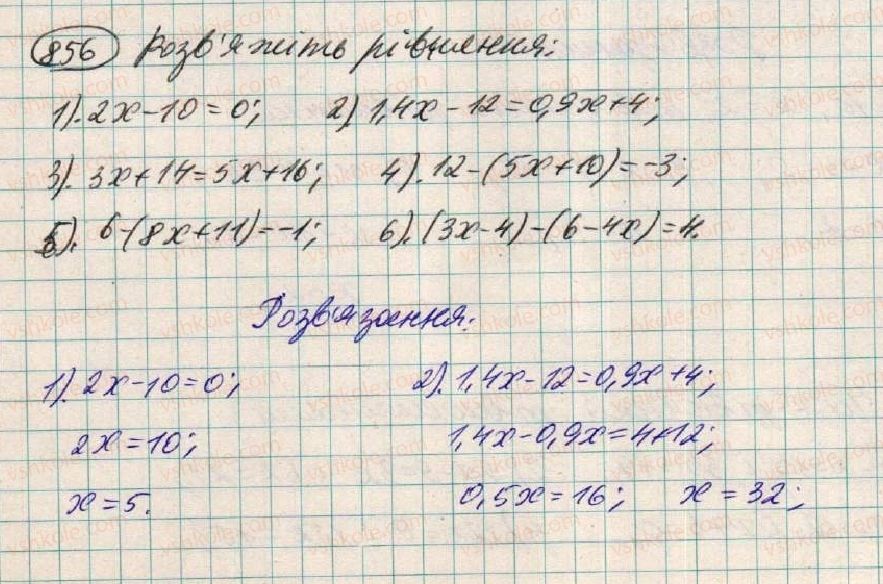 856 Розв'яжіть рівняння:
1). 2x-10=0; 2) 1,4x-12=0,9x+4;
3). 3x+14=5x+16; 4). 12-(5x+10)=-3;
5). 6-(8x+11)=-1; 6). (3x-4)-(6-4x)=4.
Розв'язання:
1). 2x-10=0; 2). 1,4x-12=0,9x+4;
2x=10; 1,4x-0,9x=4+12;
x=5. 0,5x=16; x=32;